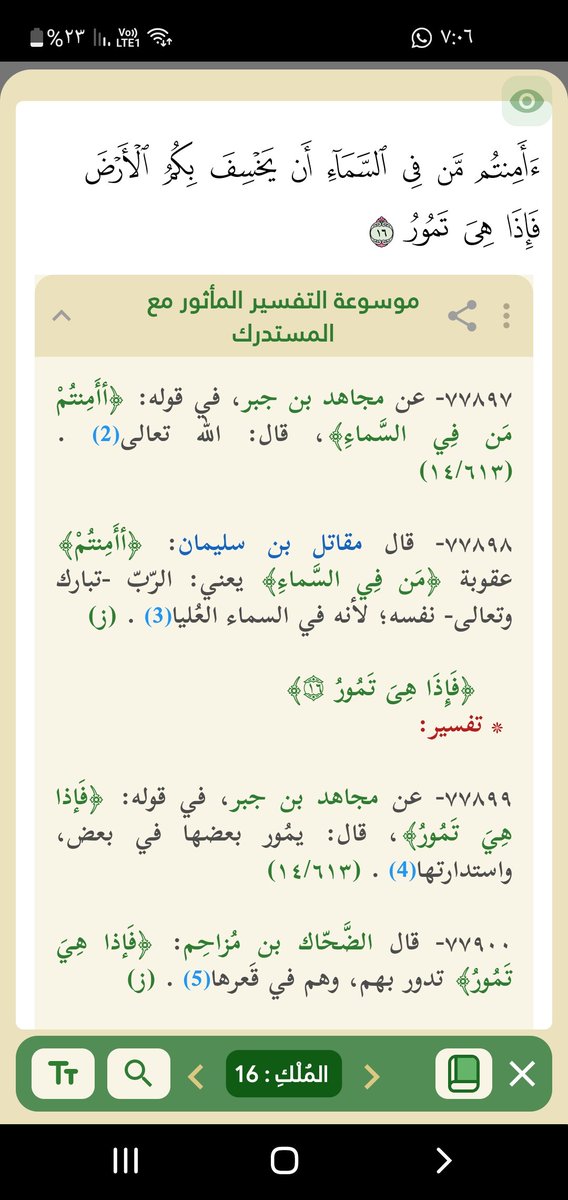 ٧:٠٦ LTE1 Vo)) %٢٣
ءَأَمِنتُم مَّن فِي ٱلسَّمَآءِ أَن يَخۡسِفَ بِكُمُ ٱلۡأَرۡضَ
فَإِذَا هِيَ تَمُورُ ١٦
موسوعة التفسير المأثور مع
المستدرك
٧٧٨٩٧- عن مجاهد بن جبر، في قوله: ﴿أأَمِنتُمْ
مَن فِي السَّماءِ﴾، قال: الله تعالى(2) .
(١٤/٦١٣)
٧٧٨٩٨- قال مقاتل بن سليمان: ﴿أأَمِنتُمْ﴾
عقوبة ﴿مَن فِي السَّماءِ﴾ يعني: الرّبّ -تبارك
وتعالى- نفسه؛ لأنه في السماء العُليا(3) . (ز)
﴿فَإِذَا هِيَ تَمُورُ ١٦﴾
* تفسير:
٧٧٨٩٩- عن مجاهد بن جبر، في قوله: ﴿فَإذا
هِيَ تَمُورُ﴾، قال: يمُور بعضها في بعض،
واستدارتها(4) . (١٤/٦١٣)
٧٧٩٠٠- قال الضَّحّاك بن مُزاحِم: ﴿فَإذا هِيَ
تَمُورُ﴾ تدور بهم، وهم في قَعرها(5) . (ز)
المُلْكِ : 16
TT